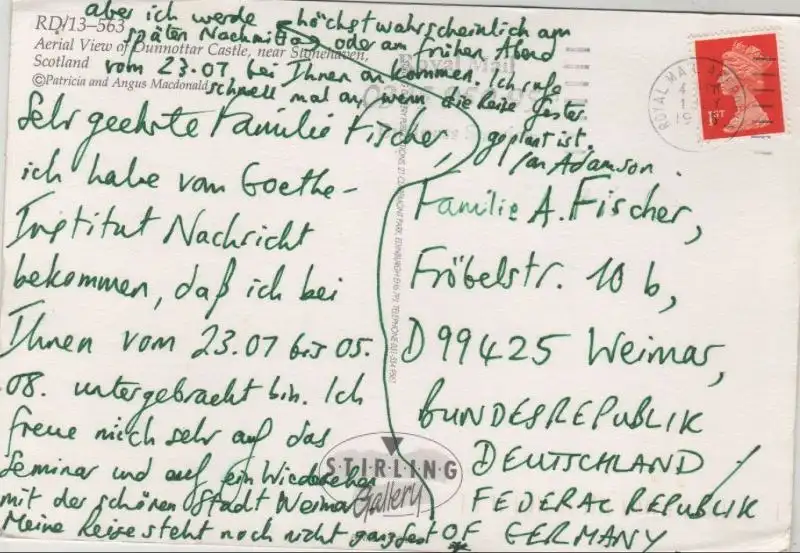 RD/13-563
Aerial View of Dunnottar Castle, near Stonehaven,
Scotland
©Patricia and Angus Macdonald
Sehr geehrte Familie Fischer,
ich habe vom Goethe-
Institut Nachricht
bekommen, daß ich bei
Ihnen vom 23.07 bis 05.
08. untergebracht bin. Ich
freue mich sehr auf das
Seminar und auf ein Wiedersehen
mit der schönen Stadt Weimar
Meine Reise steht noch nicht ganz fest
aber ich werde höchstwahrscheinlich am
späten Nachmittag oder am frühen Abend
vom 23.07 bei Ihnen ankommen. Ich rufe
schnell mal an, wenn die Reise fester
geplant ist.
Ian Adamson.
Familie A. Fischer,
Fröbelstr. 10 b,
D 99425 Weimar,
BUNDESREPUBLIK
DEUTSCHLAND /
FEDERAL REPUBLIK
OF GERMANY
STIRLING
Gallery
Royal Mail
ROYAL MAIL
1ST